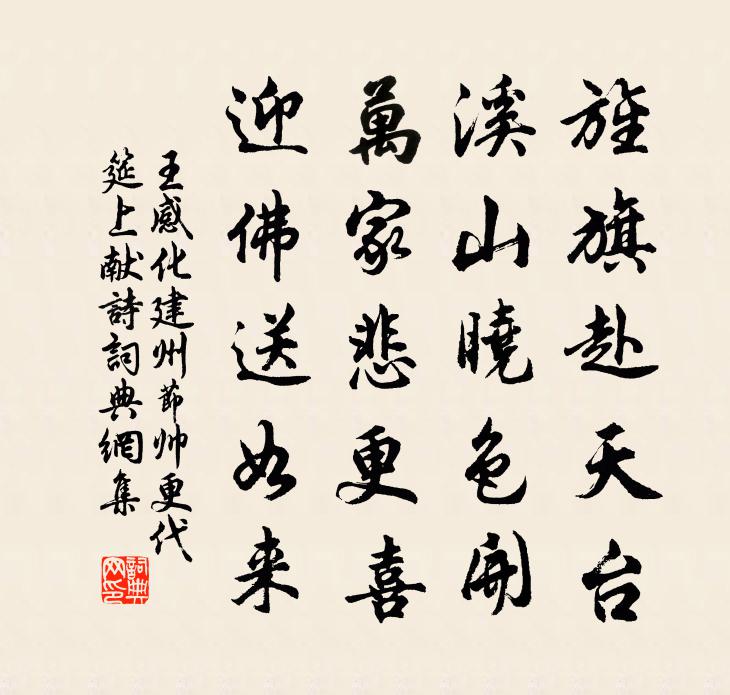 旌旗赴天台
溪山曉色開
萬家悲更喜
迎佛送如来
王感化建州節帅更代
筵上献詩詞典網集
詞典网印